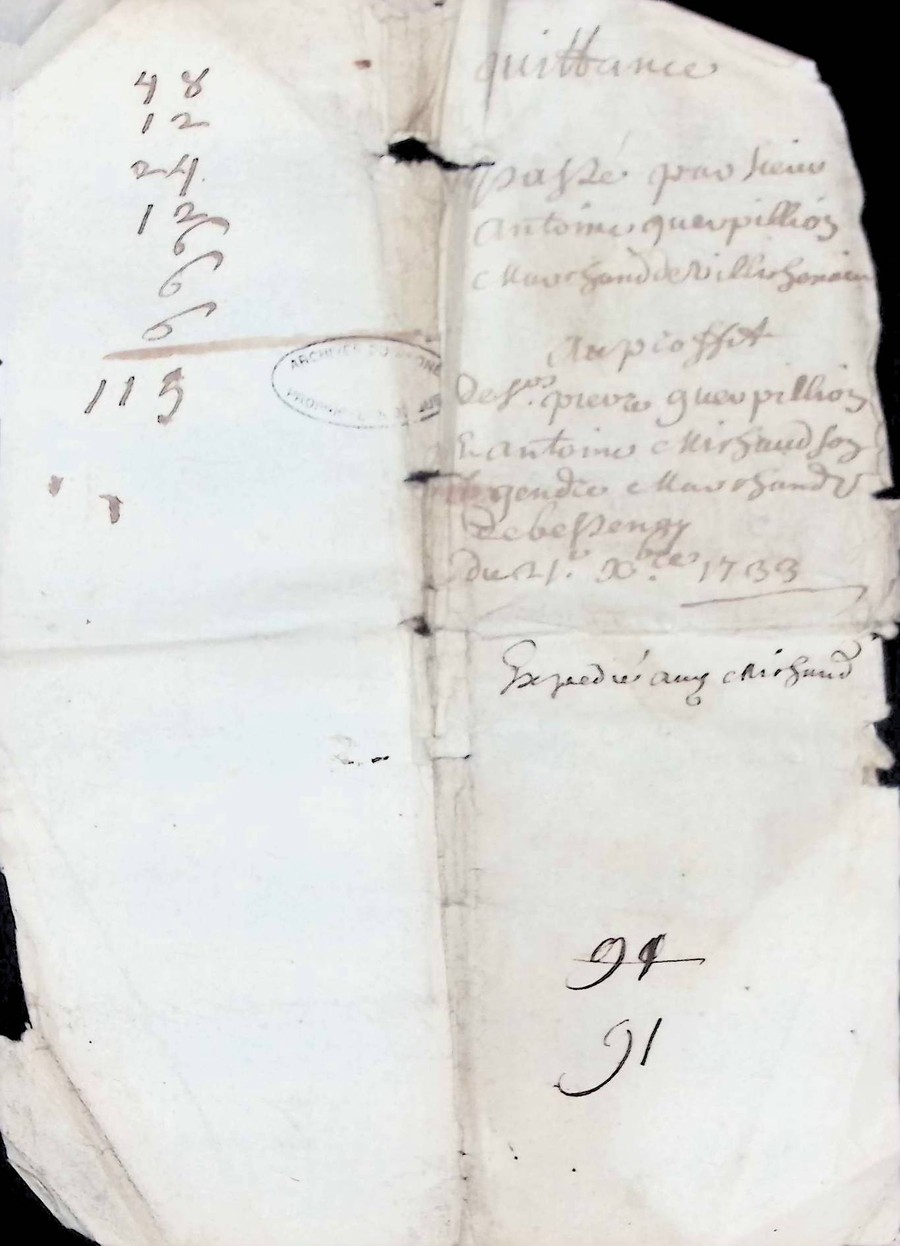 48
12
24
12
6
6
6
115
ARCHIVES DU RHONE
quittance
passé par sieur
antoine querpillion
Marchand de
Au proffit
De srs. pierre querpillion
Et antoine Michaud son
gendre Marchands
De bessenay
du 21e. Xbre. 1733
Expedié aux Michaud
94
91